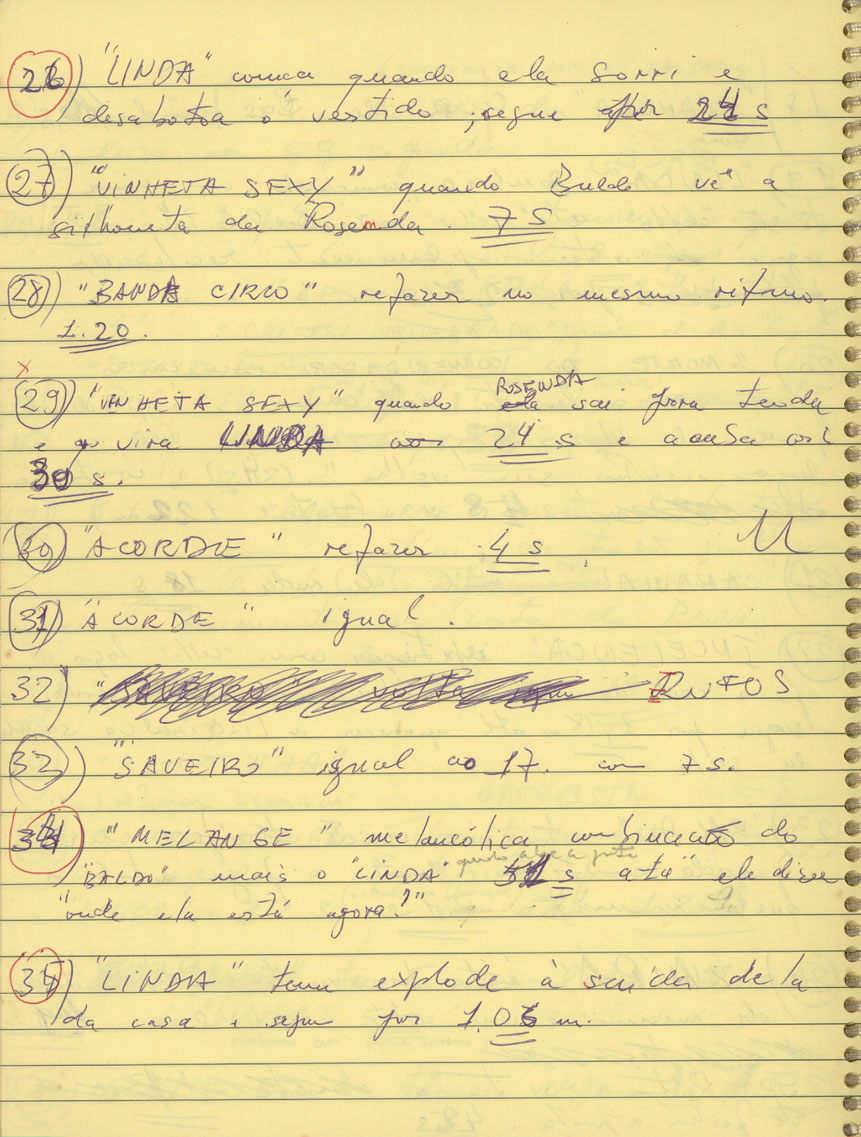 26) "LINDA" começa quando ela sorri e
desabotoa o vestido, segue por 21 s
27) "VINHETA SEXY" quando Baldo vê a
silhoueta da Rosenda. 7 s
28) "BANDA CIRCO" refazer no mesmo ritmo.
1.20.
29) "VINHETA SEXY" quando ROSENDA sai pra tenda
e vira LINDA aos 24 s e acaba aos
30 s.
30) "ACORDE" refazer 4 s.
31) "ACORDE" igual.
32) volta
32) "SAVEIRO" igual ao 17. com 7 s.
"MELANGE" melancólica combinando do
"BALDO" mais o "LINDA" quando abre a porta s até ele dizer
"onde ela está agora?"
34) "LINDA" tema explode à saída dela
da casa e segue por m.